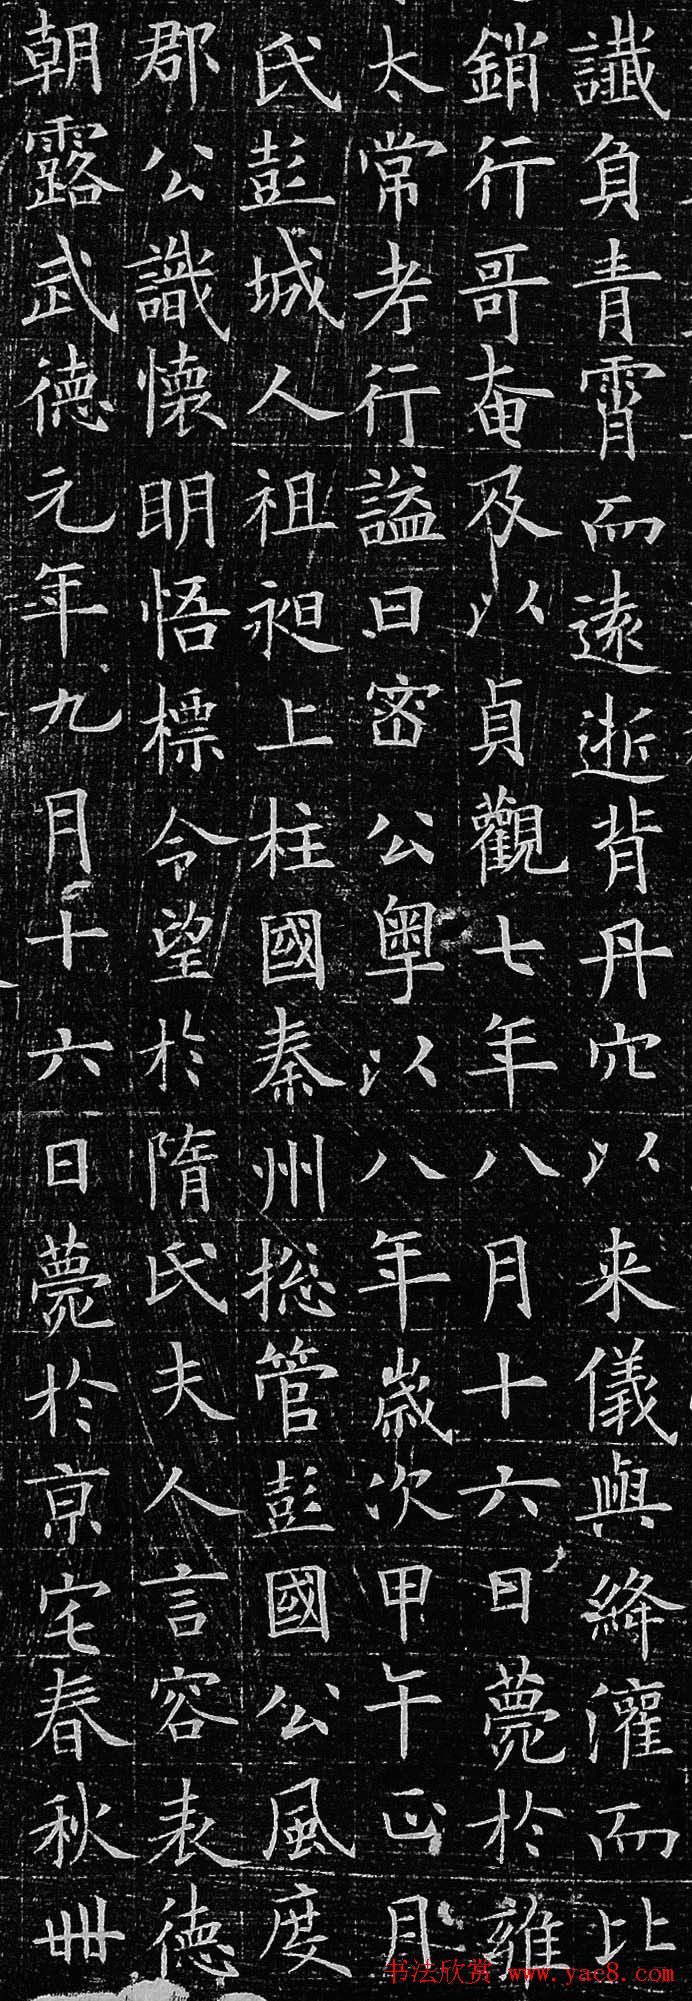 讖負青霄而遠逝背丹穴以来儀與絳灌而比
銷行哥奄及以貞觀七年八月十六日薨於雍
太常考行謚曰密公粤以八年歲次甲午正月
氏彭城人祖昶上柱國秦州捴管彭國公風度
郡公識懷明悟標令望於隋氏夫人言容表德
朝露武德元年九月十六日薨於京宅春秋卌
书法欣赏 www.yac8.com